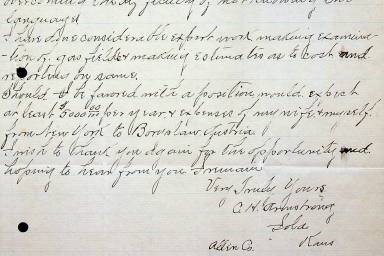 language
I have done considerable expert work making examina-
tion of gas fields & making estimates as to cost and
reporting on same.
Should I be favored with a position would expect
at least $5000 00 per year & expenses of my wife & myself
from New York to Boryslaw Austria
I wish to thank you again for the opportunity and
hoping to hear from you I remain
Very Truly Yours
C. H. Armstrong
Iola
Allen Co. Kans